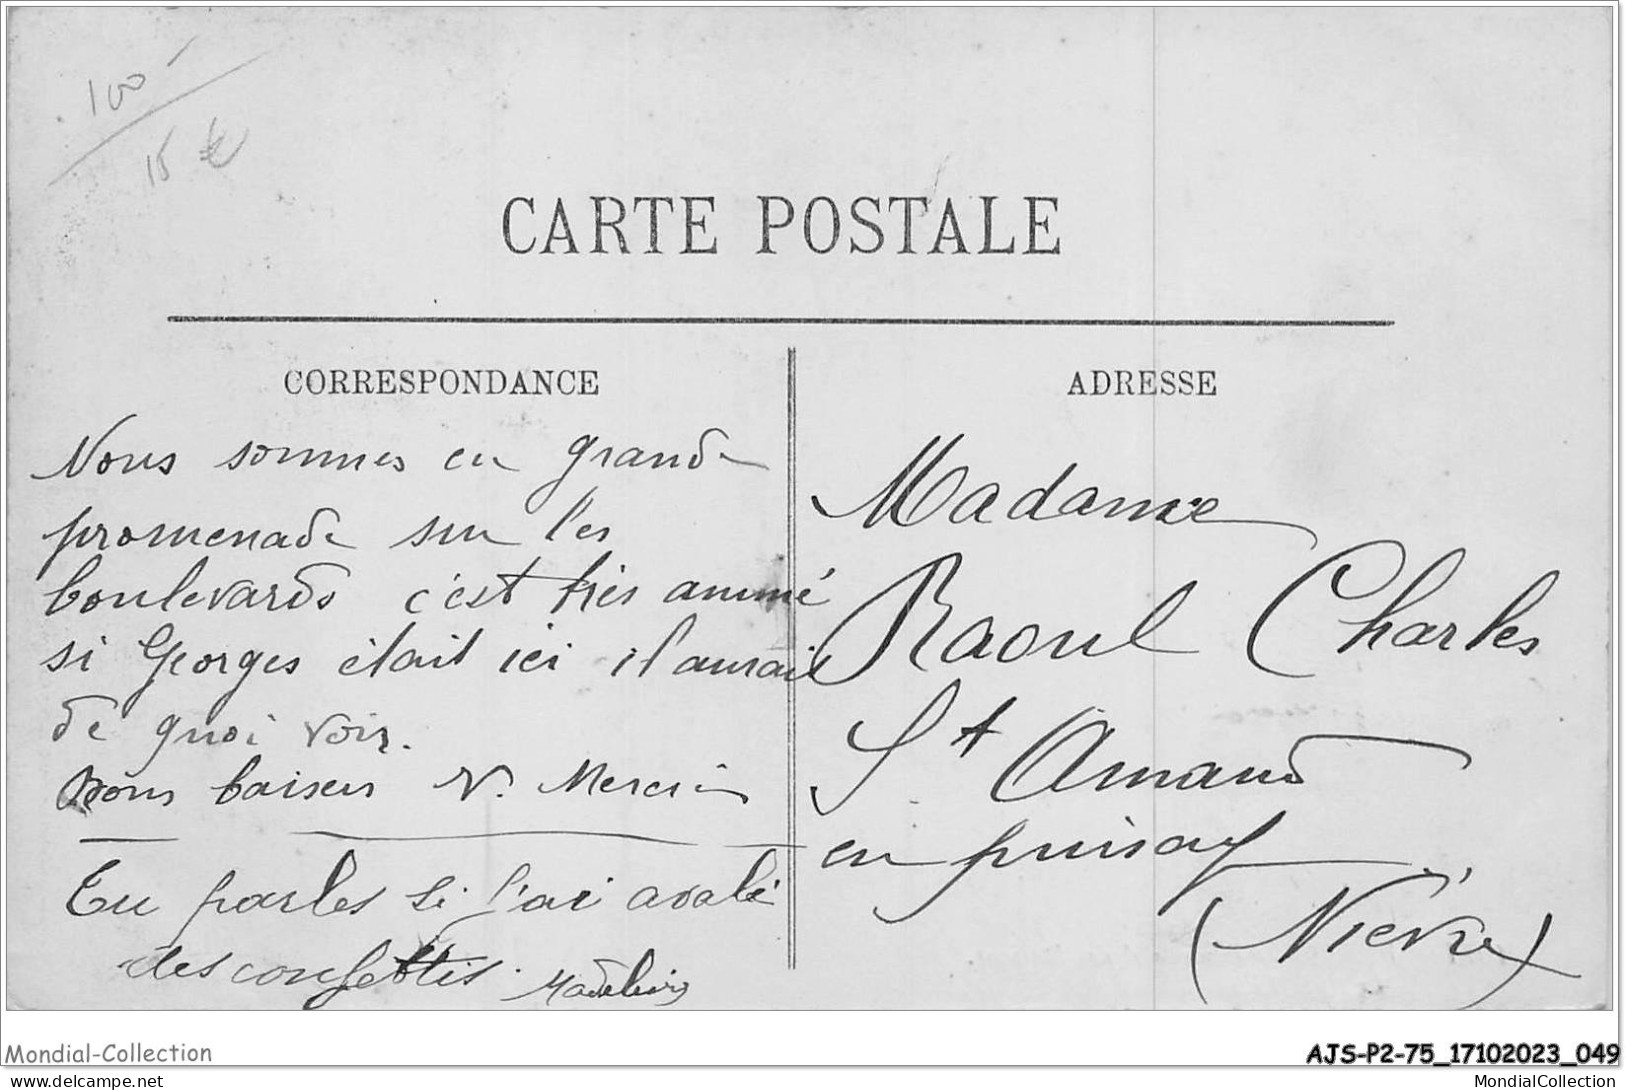 100
15 €
CARTE POSTALE
CORRESPONDANCE
Nous sommes en grande
promenade sur les
boulevards c'est très animé
si Georges était ici il aurait
de quoi voir.
bons baisers V. Mercier
Tu parles si j'ai avalé
des confettis. Madeleine
ADRESSE
Madame
Raoul Charles
St Amand
en puisaye
(Nièvre)
Mondial-Collection
AJS-P2-75_17102023_049
www.delcampe.net
MondialCollection